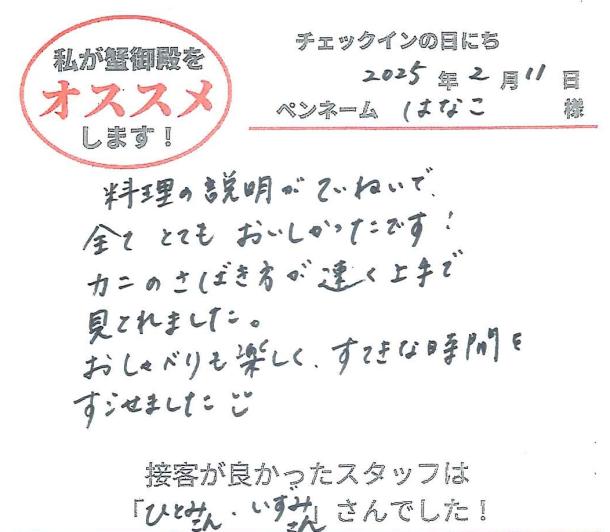 私が蟹御殿を
オススメ
します！
チェックインの日にち
2025年2月11日
ペンネーム はなこ 様
料理の説明がていねいで、
全て とても おいしかったです！
カニのさばき方が速く上手で
見とれました。
おしゃべりも楽しく、すてきな時間を
すごせました
接客が良かったスタッフは
「ひとみさん・いずみさん」さんでした！